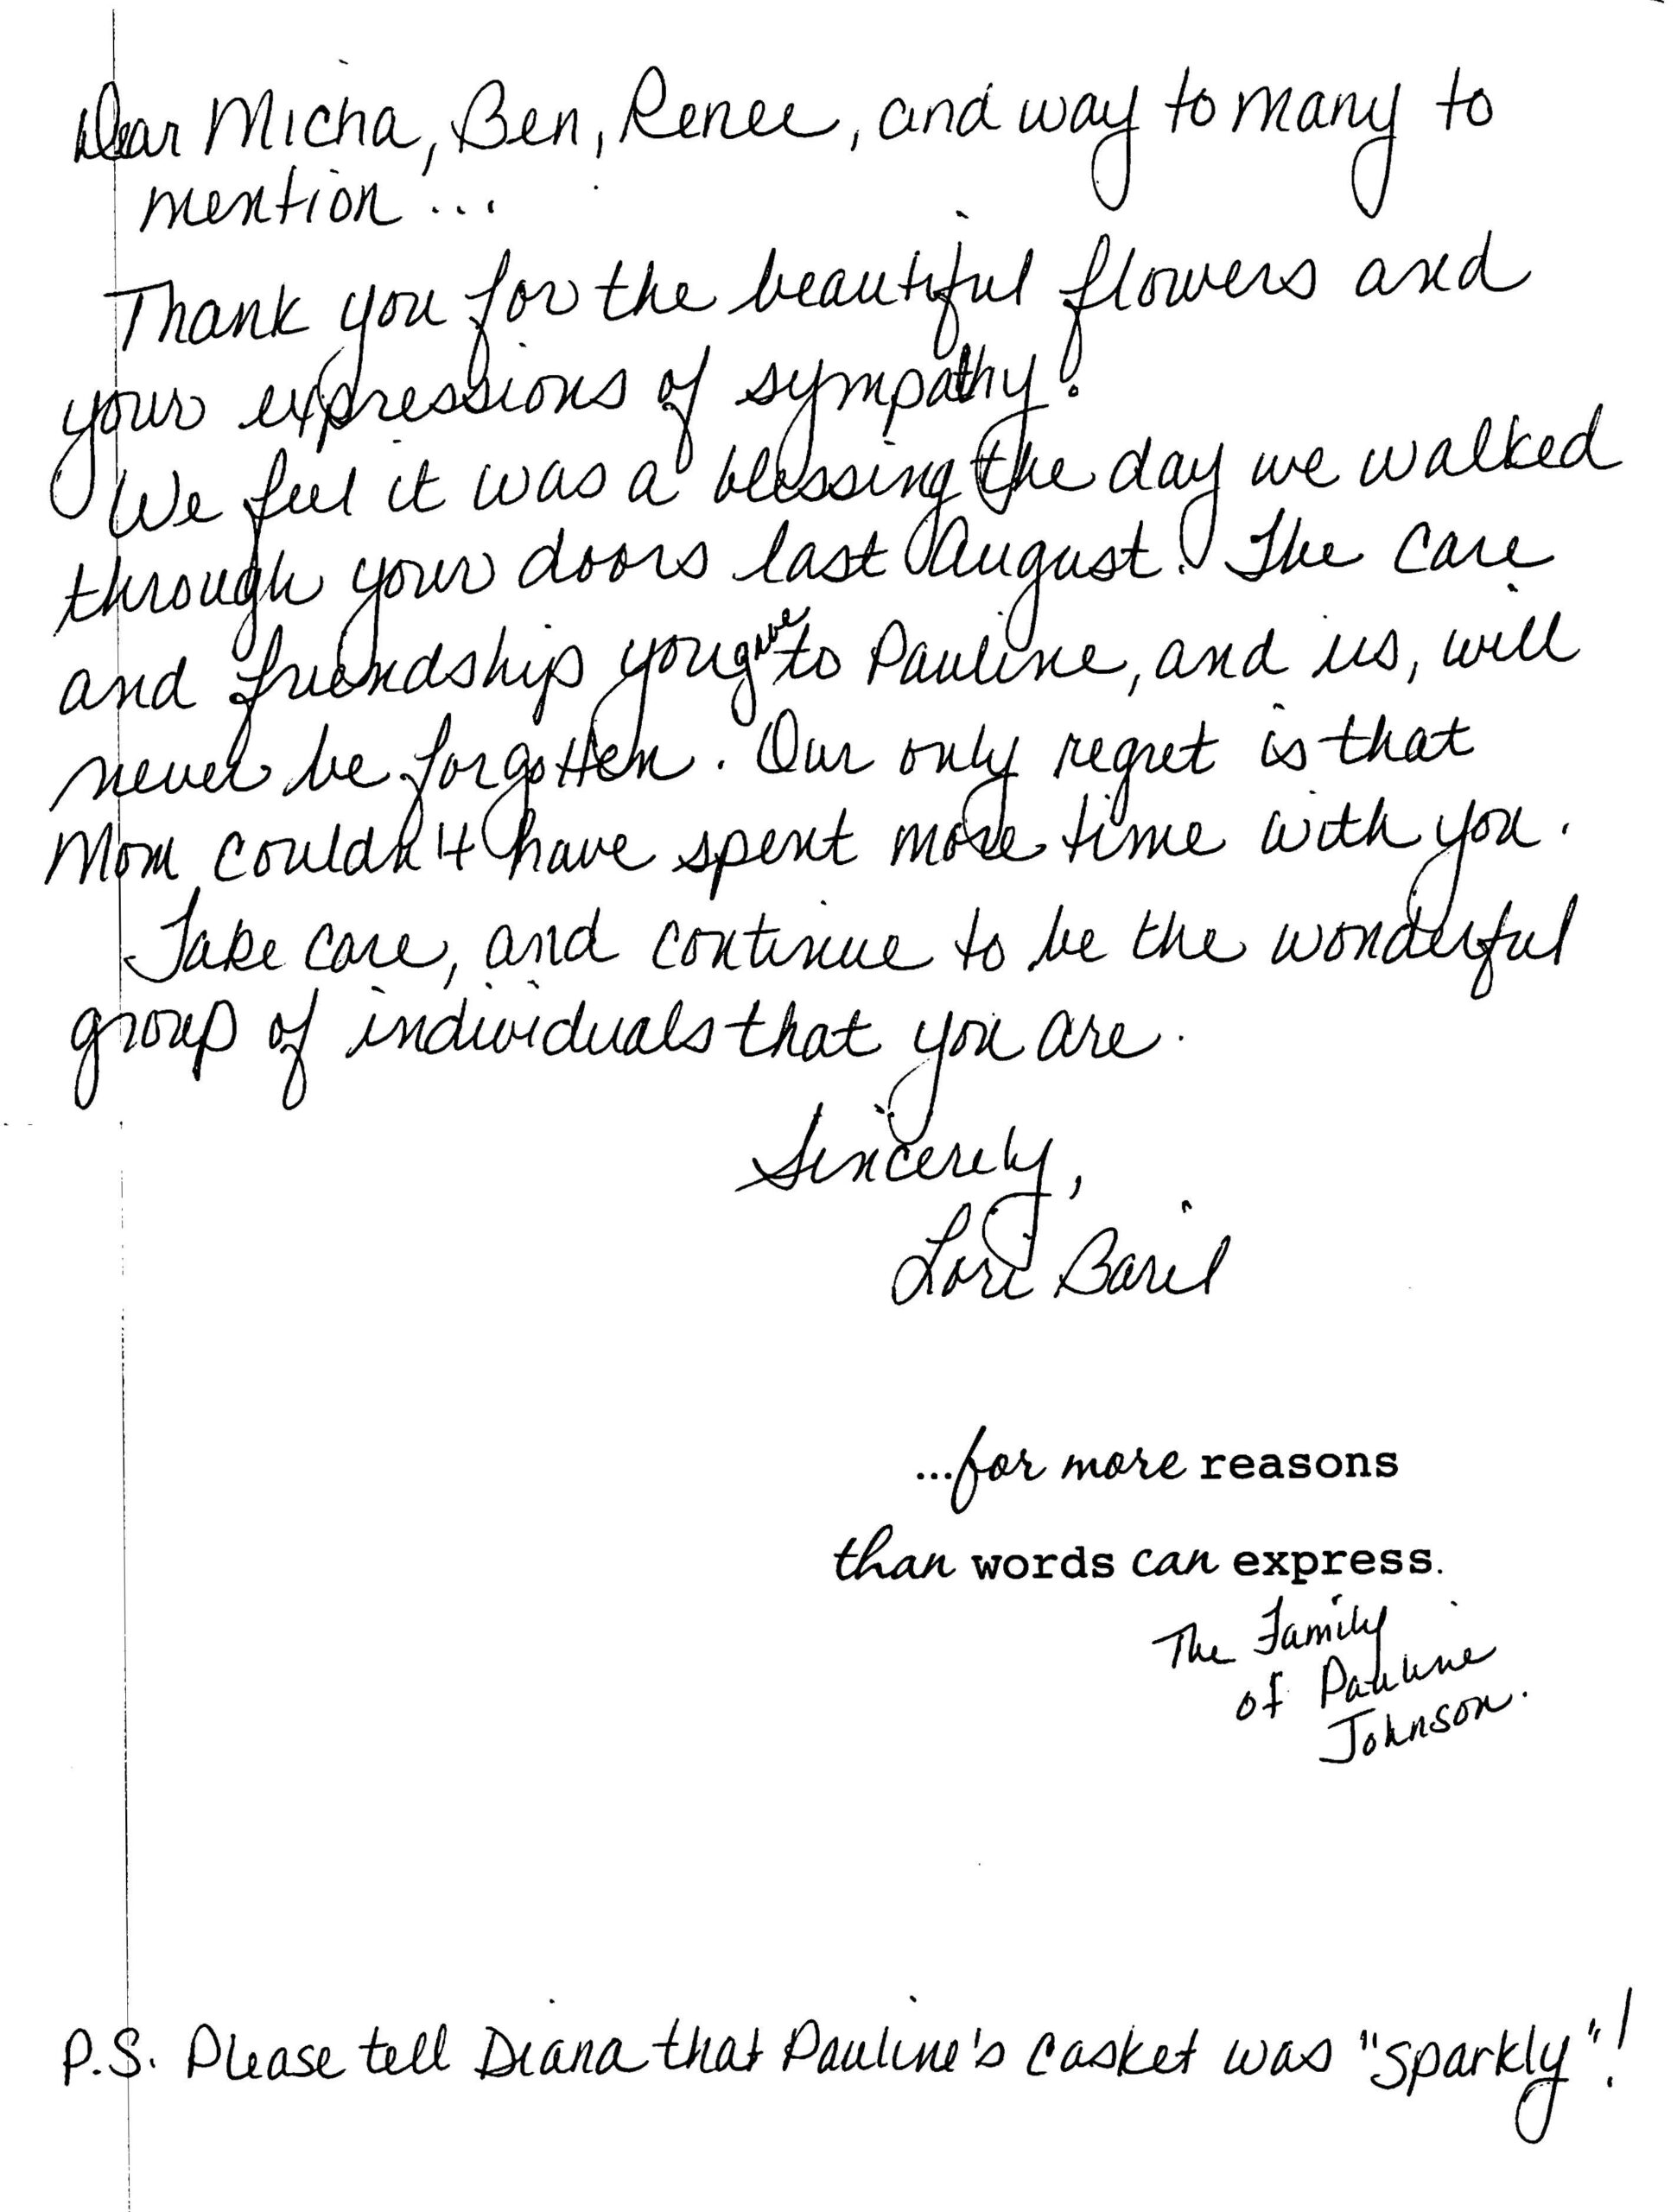 Dear Micha, Ben, Renee, and way to many to
mention...
Thank you for the beautiful flowers and
your expressions of sympathy.
We feel it was a blessing the day we walked
through your doors last August. The care
and friendship you gave to Pauline, and us, will
never be forgotten. Our only regret is that
Mom couldn't have spent more time with you.
Take care, and continue to be the wonderful
group of individuals that you are.
Sincerely,
Lori Baril
...for more reasons
than words can express.
The Family
of Pauline
Johnson.
P.S. Please tell Diana that Pauline's casket was "sparkly"!